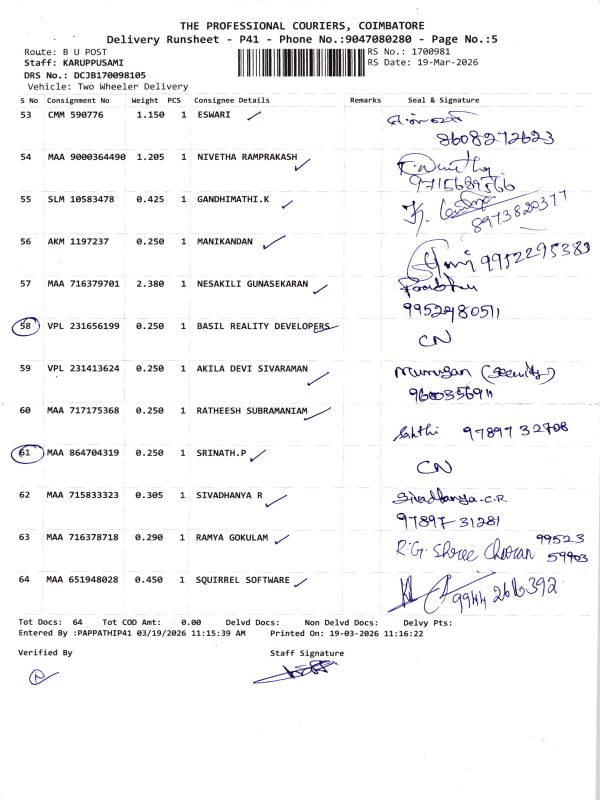 THE PROFESSIONAL COURIERS, COIMBATORE
Delivery Runsheet - P41 - Phone No.:9047080280 - Page No.:5
Route: B U POST RS No.: 1700981
Staff: KARUPPUSAMI RS Date: 19-Mar-2026
DRS No.: DCJB170098105
Vehicle: Two Wheeler Delivery
S No Consignment No Weight PCS Consignee Details Remarks Seal & Signature
53 CMM 590776 1.150 1 ESWARI
8608272623
54 MAA 9000364490 1.205 1 NIVETHA RAMPRAKASH
55 SLM 10583478 0.425 1 GANDHIMATHI.K
8973820377
56 AKM 1197237 0.250 1 MANIKANDAN
9952295383
57 MAA 716379701 2.380 1 NESAKILI GUNASEKARAN
9952480511
58 VPL 231656199 0.250 1 BASIL REALITY DEVELOPERS
CN
59 VPL 231413624 0.250 1 AKILA DEVI SIVARAMAN Murugan (Security)
9600356911
60 MAA 717175368 0.250 1 RATHEESH SUBRAMANIAM
Sakthi 9789732708
61 MAA 864704319 0.250 1 SRINATH.P
CN
62 MAA 715833323 0.305 1 SIVADHANYA R Sivadhanya.C.R.
97897-31281
63 MAA 716378718 0.290 1 RAMYA GOKULAM R.G. Shree Charan 99523
59903
64 MAA 651948028 0.450 1 SQUIRREL SOFTWARE
Tot Docs: 64 Tot COD Amt: 0.00 Delvd Docs: Non Delvd Docs: Delvy Pts:
Entered By :PAPPATHIP41 03/19/2026 11:15:39 AM Printed On: 19-03-2026 11:16:22
Verified By Staff Signature